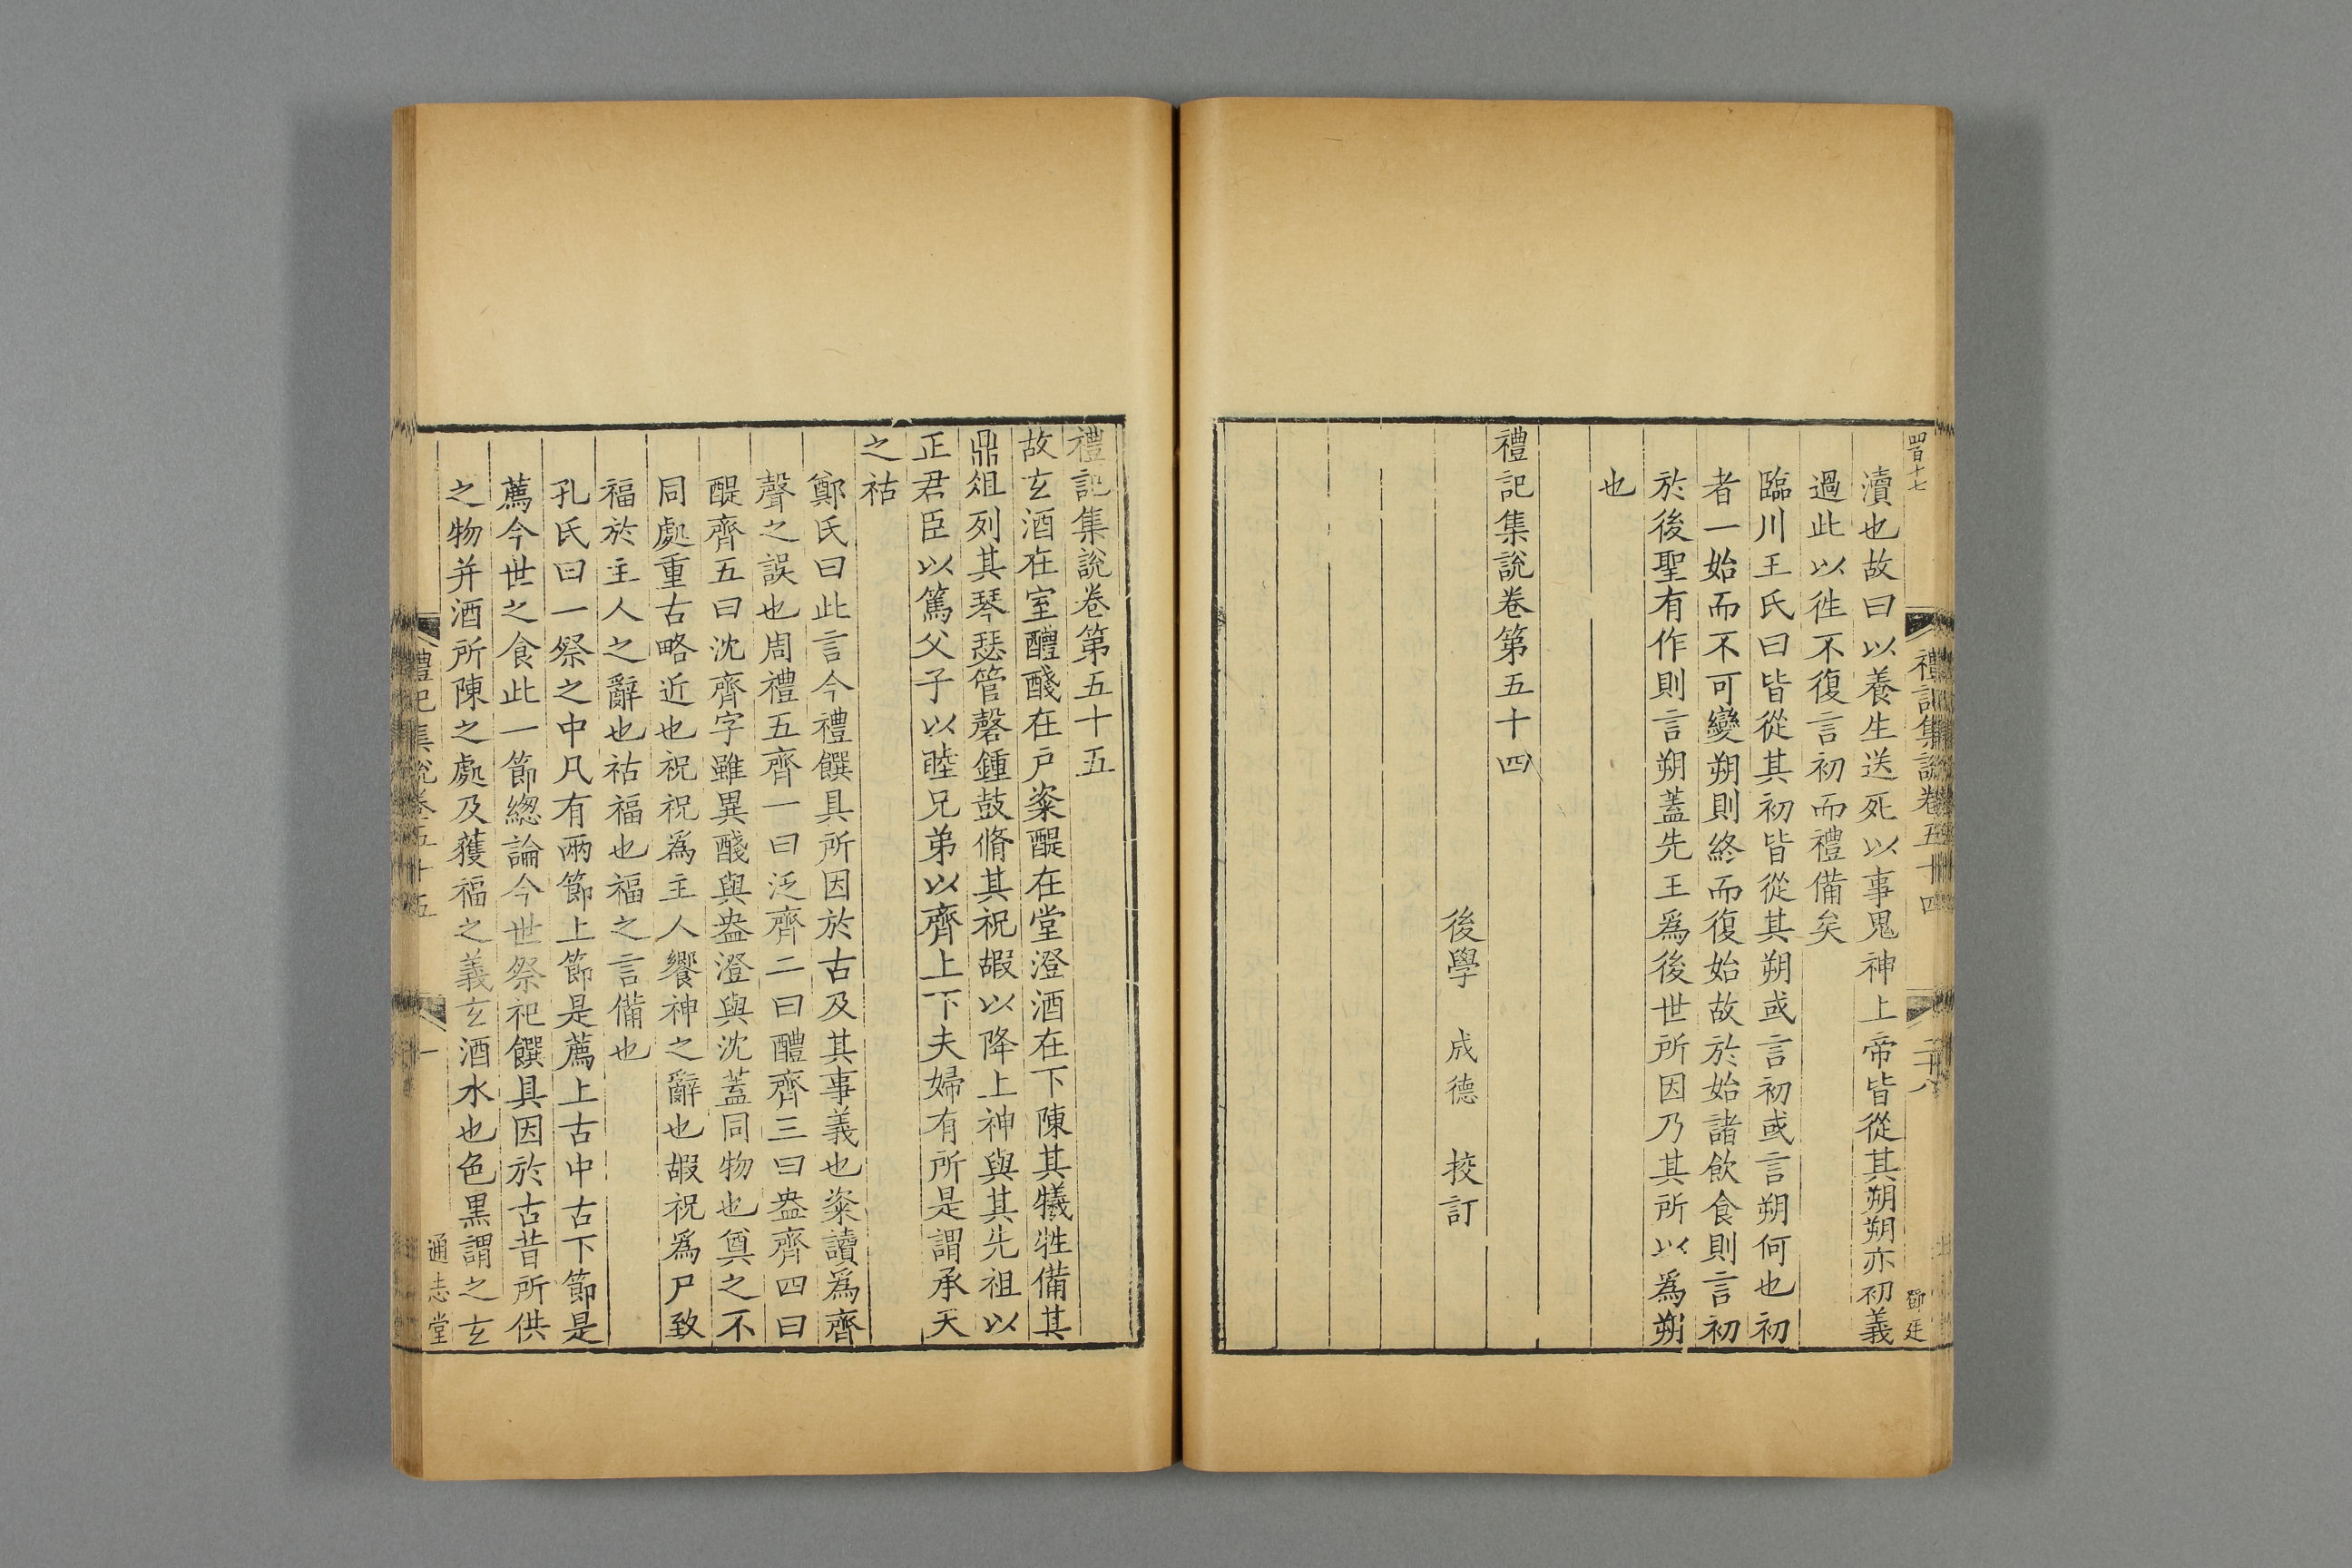 四百十七
禮記集說卷五十四
二十八
鄧廷
瀆也故曰以養生送死以事鬼神上帝皆從其朔朔亦初義
過此以徃不復言初而禮備矣
臨川王氏曰皆從其初皆從其朔或言初或言朔何也初
者一始而不可變朔則終而復始故於始諸飲食則言初
於後聖有作則言朔蓋先王爲後世所因乃其所以爲朔
也
禮記集說卷第五十四
後學 成德 挍訂
禮記集說卷第五十五
故玄酒在室醴醆在戶粢醍在堂澄酒在下陳其犧牲備其
鼎俎列其琴瑟管磬鍾鼓脩其祝嘏以降上神與其先祖以
正君臣以篤父子以睦兄弟以齊上下夫婦有所是謂承天
之祜
鄭氏曰此言今禮饌具所因於古及其事義也粢讀爲齊
聲之誤也周禮五齊一曰泛齊二曰醴齊三曰盎齊四曰
醍齊五曰沈齊字雖異醆與盎澄與沈蓋同物也奠之不
同處重古略近也祝祝爲主人饗神之辭也嘏祝爲尸致
福於主人之辭也祜福也福之言備也
孔氏曰一祭之中凡有兩節上節是薦上古中古下節是
薦今世之食此一節緫論今世祭祀饌具因於古昔所供
之物并酒所陳之處及獲福之義玄酒水也色黑謂之玄
禮記集說卷五十五
一
通志堂